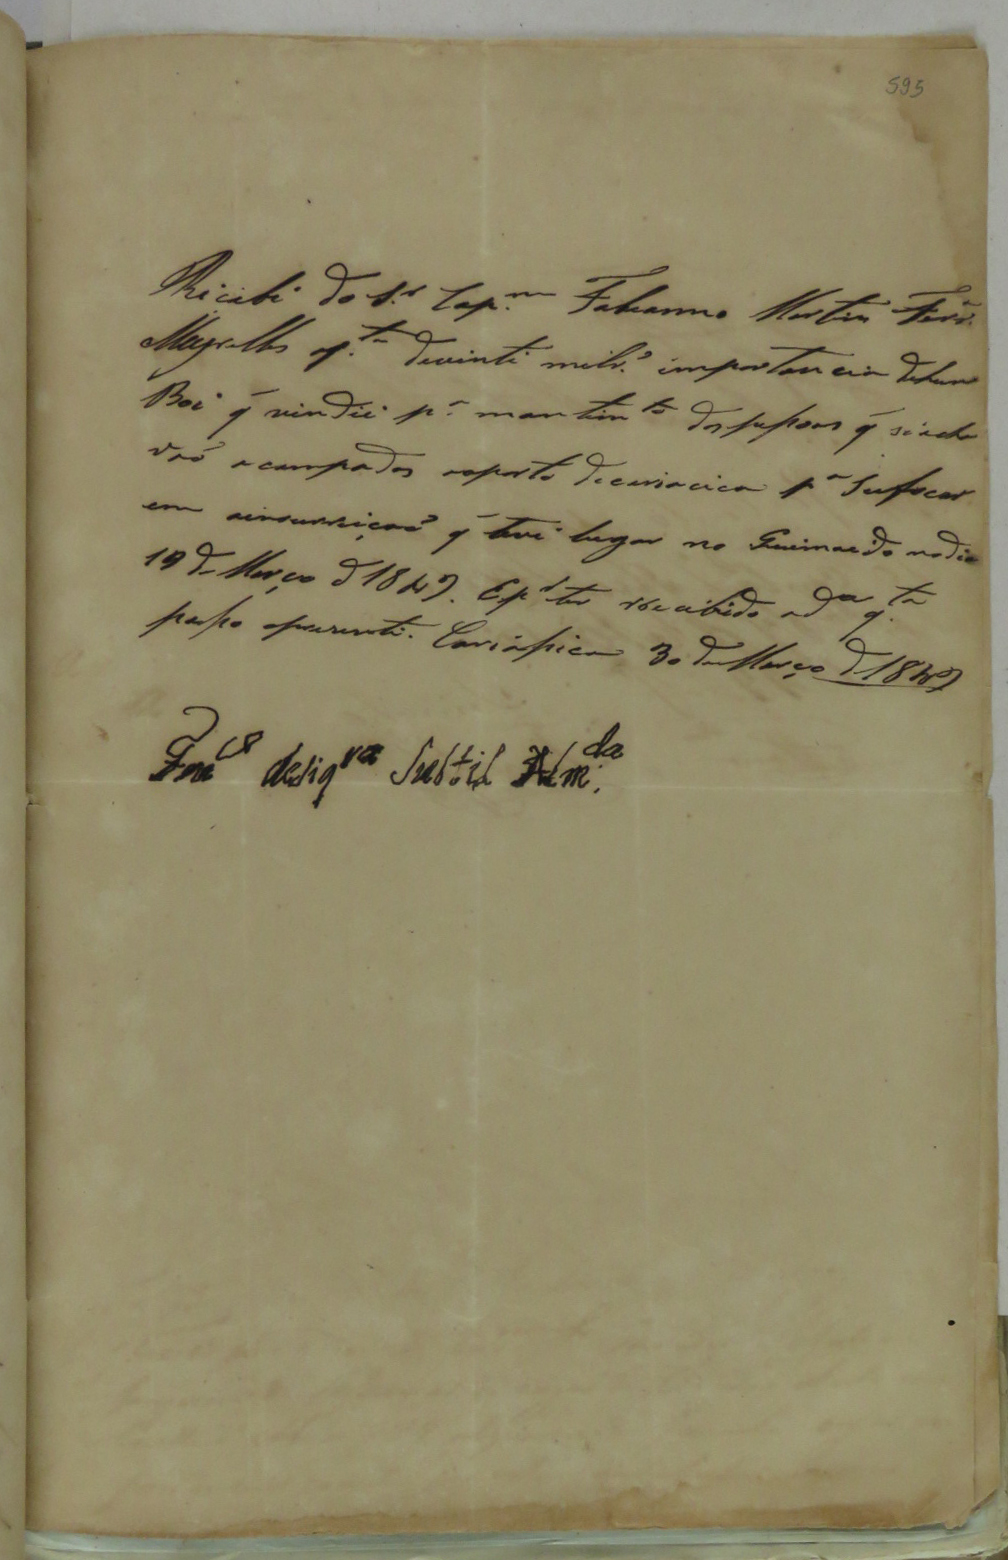 595
Recibi do S.r Cap.m Fabianno Martins Ferr.a
Meyrelles a q.ta de vinti mil r.s importancia de hum
Boi q̃ vindii p.a mantim.to das pessoas q̃ se acha
vaõ acampados no porto de cariacica p.a Sufocar
em a insurreiçaõ q̃ teve lugar no Queimado no dia
19 de Março d 1849. E p.r ter recibido a d.a q.ta
passo o presente. Cariassica 30 de Março d 1849
Fran.co de Siq.ra Subtil Alm.da